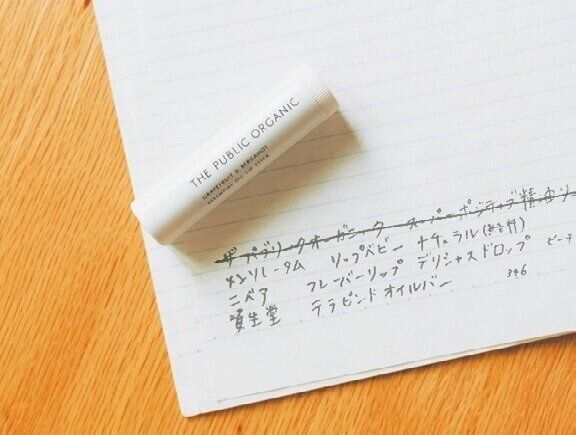 THE PUBLIC ORGANIC
GRAPEFRUIT & BERGAMOT
ESSENTIAL OIL LIP STICK
ザ パブリックオーガニック スーパーポジティブ精油リ
メンソレータム リップベビー ナチュラル(無香料)
ニベア フレーバーリップ デリシャスドロップ ピーチ
資生堂 テラピンドオイルバー 346